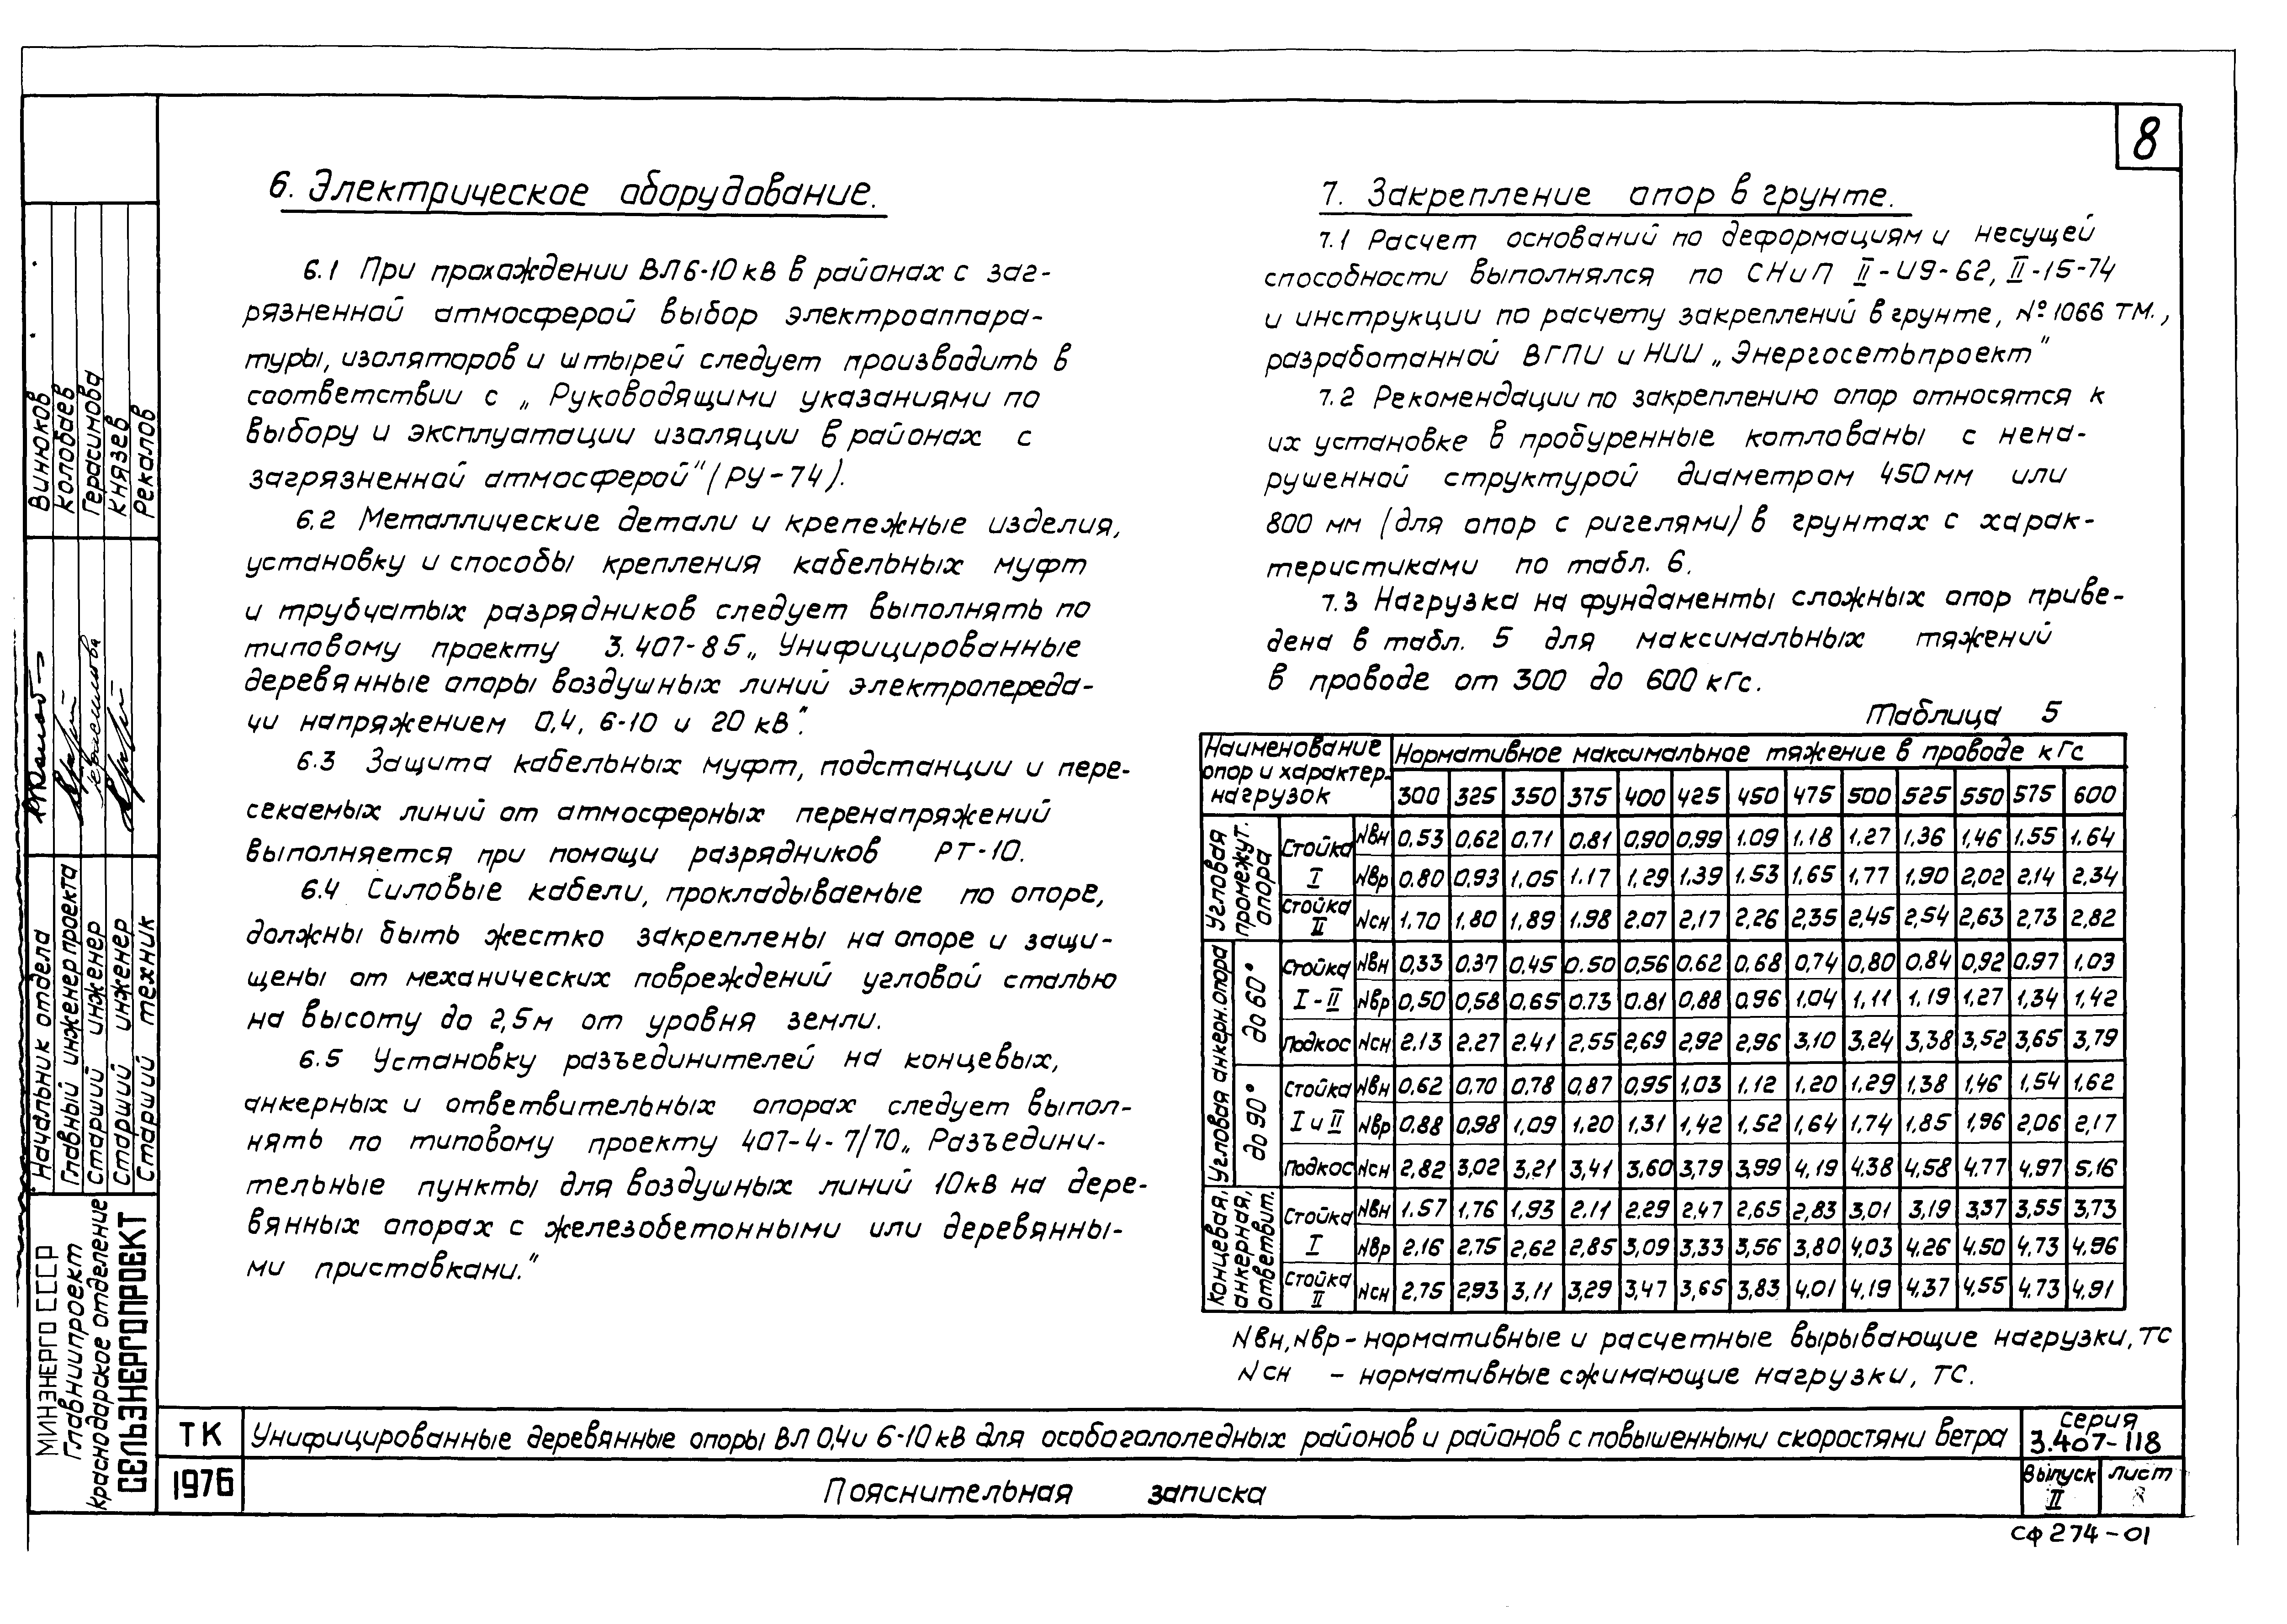 8
6. Электрическое оборудование.
6.1 При прохождении ВЛ 6-10 кВ в районах с заг-
рязненной атмосферой выбор электроаппара-
туры, изоляторов и штырей следует производить в
соответствии с „Руководящими указаниями по
выбору и эксплуатации изоляции в районах с
загрязненной атмосферой" (РУ-74).
6.2 Металлические детали и крепежные изделия,
установку и способы крепления кабельных муфт
и трубчатых разрядников следует выполнять по
типовому проекту 3.407-85 „Унифицированные
деревянные опоры воздушных линий электропереда-
чи напряжением 0,4, 6-10 и 20 кВ".
6.3 Защита кабельных муфт, подстанции и пере-
секаемых линий от атмосферных перенапряжений
выполняется при помощи разрядников РТ-10.
6.4 Силовые кабели, прокладываемые по опоре,
должны быть жестко закреплены на опоре и защи-
щены от механических повреждений угловой сталью
на высоту до 2,5м от уровня земли.
6.5 Установку разъединителей на концевых,
анкерных и ответвительных опорах следует выпол-
нять по типовому проекту 407-4-7/70 „Разъедини-
тельные пункты для воздушных линий 10кВ на дере-
вянных опорах с железобетонными или деревянны-
ми приставками."
7. Закрепление опор в грунте.
7.1 Расчет оснований по деформациям и несущей
способности выполнялся по СНиП II-И9-62, II-15-74
и инструкции по расчету закреплений в грунте, №1066 ТМ.,
разработанной ВГПИ и НИИ „Энергосетьпроект"
7.2 Рекомендации по закреплению опор относятся к
их установке в пробуренные котлованы с нена-
рушенной структурой диаметром 450 мм или
800 мм (для опор с ригелями) в грунтах с харак-
теристиками по табл. 6.
7.3 Нагрузка на фундаменты сложных опор приве-
дена в табл. 5 для максимальных тяжений
в проводе от 300 до 600 кГс.
Таблица 5
Наименование опор и характер. нагрузок Нормативное максимальное тяжение в проводе кГс
300 325 350 375 400 425 450 475 500 525 550 575 600
Угловая промежут. опора Стойка I Nвн 0.53 0,62 0,71 0.81 0,90 0,99 1.09 1,18 1.27 1,36 1,46 1.55 1.64
Nвр 0.80 0,93 1,05 1.17 1,29 1,39 1.53 1,65 1,77 1,90 2,02 2,14 2,34
Стойка II Nсн 1.70 1,80 1,89 1.98 2.07 2,17 2,26 2,35 2.45 2,54 2,63 2,73 2,82
Угловая анкерн. опора до 60° Стойка I-II Nвн 0,33 0.37 0.45 0.50 0,56 0.62 0,68 0,74 0,80 0.84 0,92 0.97 1,03
Nвр 0,50 0,58 0.65 0.73 0.81 0,88 0,96 1,04 1,11 1,19 1,27 1,34 1,42
Подкос Nсн 2.13 2.27 2.41 2,55 2,69 2,92 2,96 3,10 3,24 3,38 3,52 3,65 3,79
до 90° Стойка I и II Nвн 0.62 0,70 0,78 0,87 0,95 1,03 1.12 1.20 1.29 1,38 1,46 1,54 1,62
Nвр 0.88 0,98 1,09 1,20 1.31 1,42 1,52 1,64 1,74 1,85 1,96 2,06 2,17
Подкос Nсн 2.82 3,02 3,21 3,41 3,60 3,79 3,99 4,19 4.38 4,58 4,77 4,97 5,16
Концевая, анкерная, ответвит. Стойка I Nвн 1.57 1,76 1,93 2.11 2.29 2,47 2,65 2,83 3,01 3,19 3,37 3,55 3,73
Nвр 2,16 2,75 2,62 2,85 3,09 3,33 3,56 3,80 4,03 4,26 4,50 4,73 4,96
Стойка II Nсн 2,75 2,93 3,11 3,29 3,47 3,65 3,83 4,01 4,19 4,37 4,55 4,73 4,91
Nвн, Nвр - нормативные и расчетные вырывающие нагрузки, ТС
Nсн - нормативные сжимающие нагрузки, ТС.
Винюков
Колобаев
Герасимова
Князев
Рекалов
Начальник отдела
Главный инженер проекта
Старший инженер
Старший инженер
Старший техник
МИНЭНЕРГО СССР
Главниипроект
Краснодарское отделение
СЕЛЬЭНЕРГОПРОЕКТ
ТК
1976
Унифицированные деревянные опоры ВЛ 0,4 и 6-10 кВ для особогололедных районов и районов с повышенными скоростями ветра
Пояснительная записка
Серия
3.407-118
Выпуск
II
Лист
8
СФ 274-01